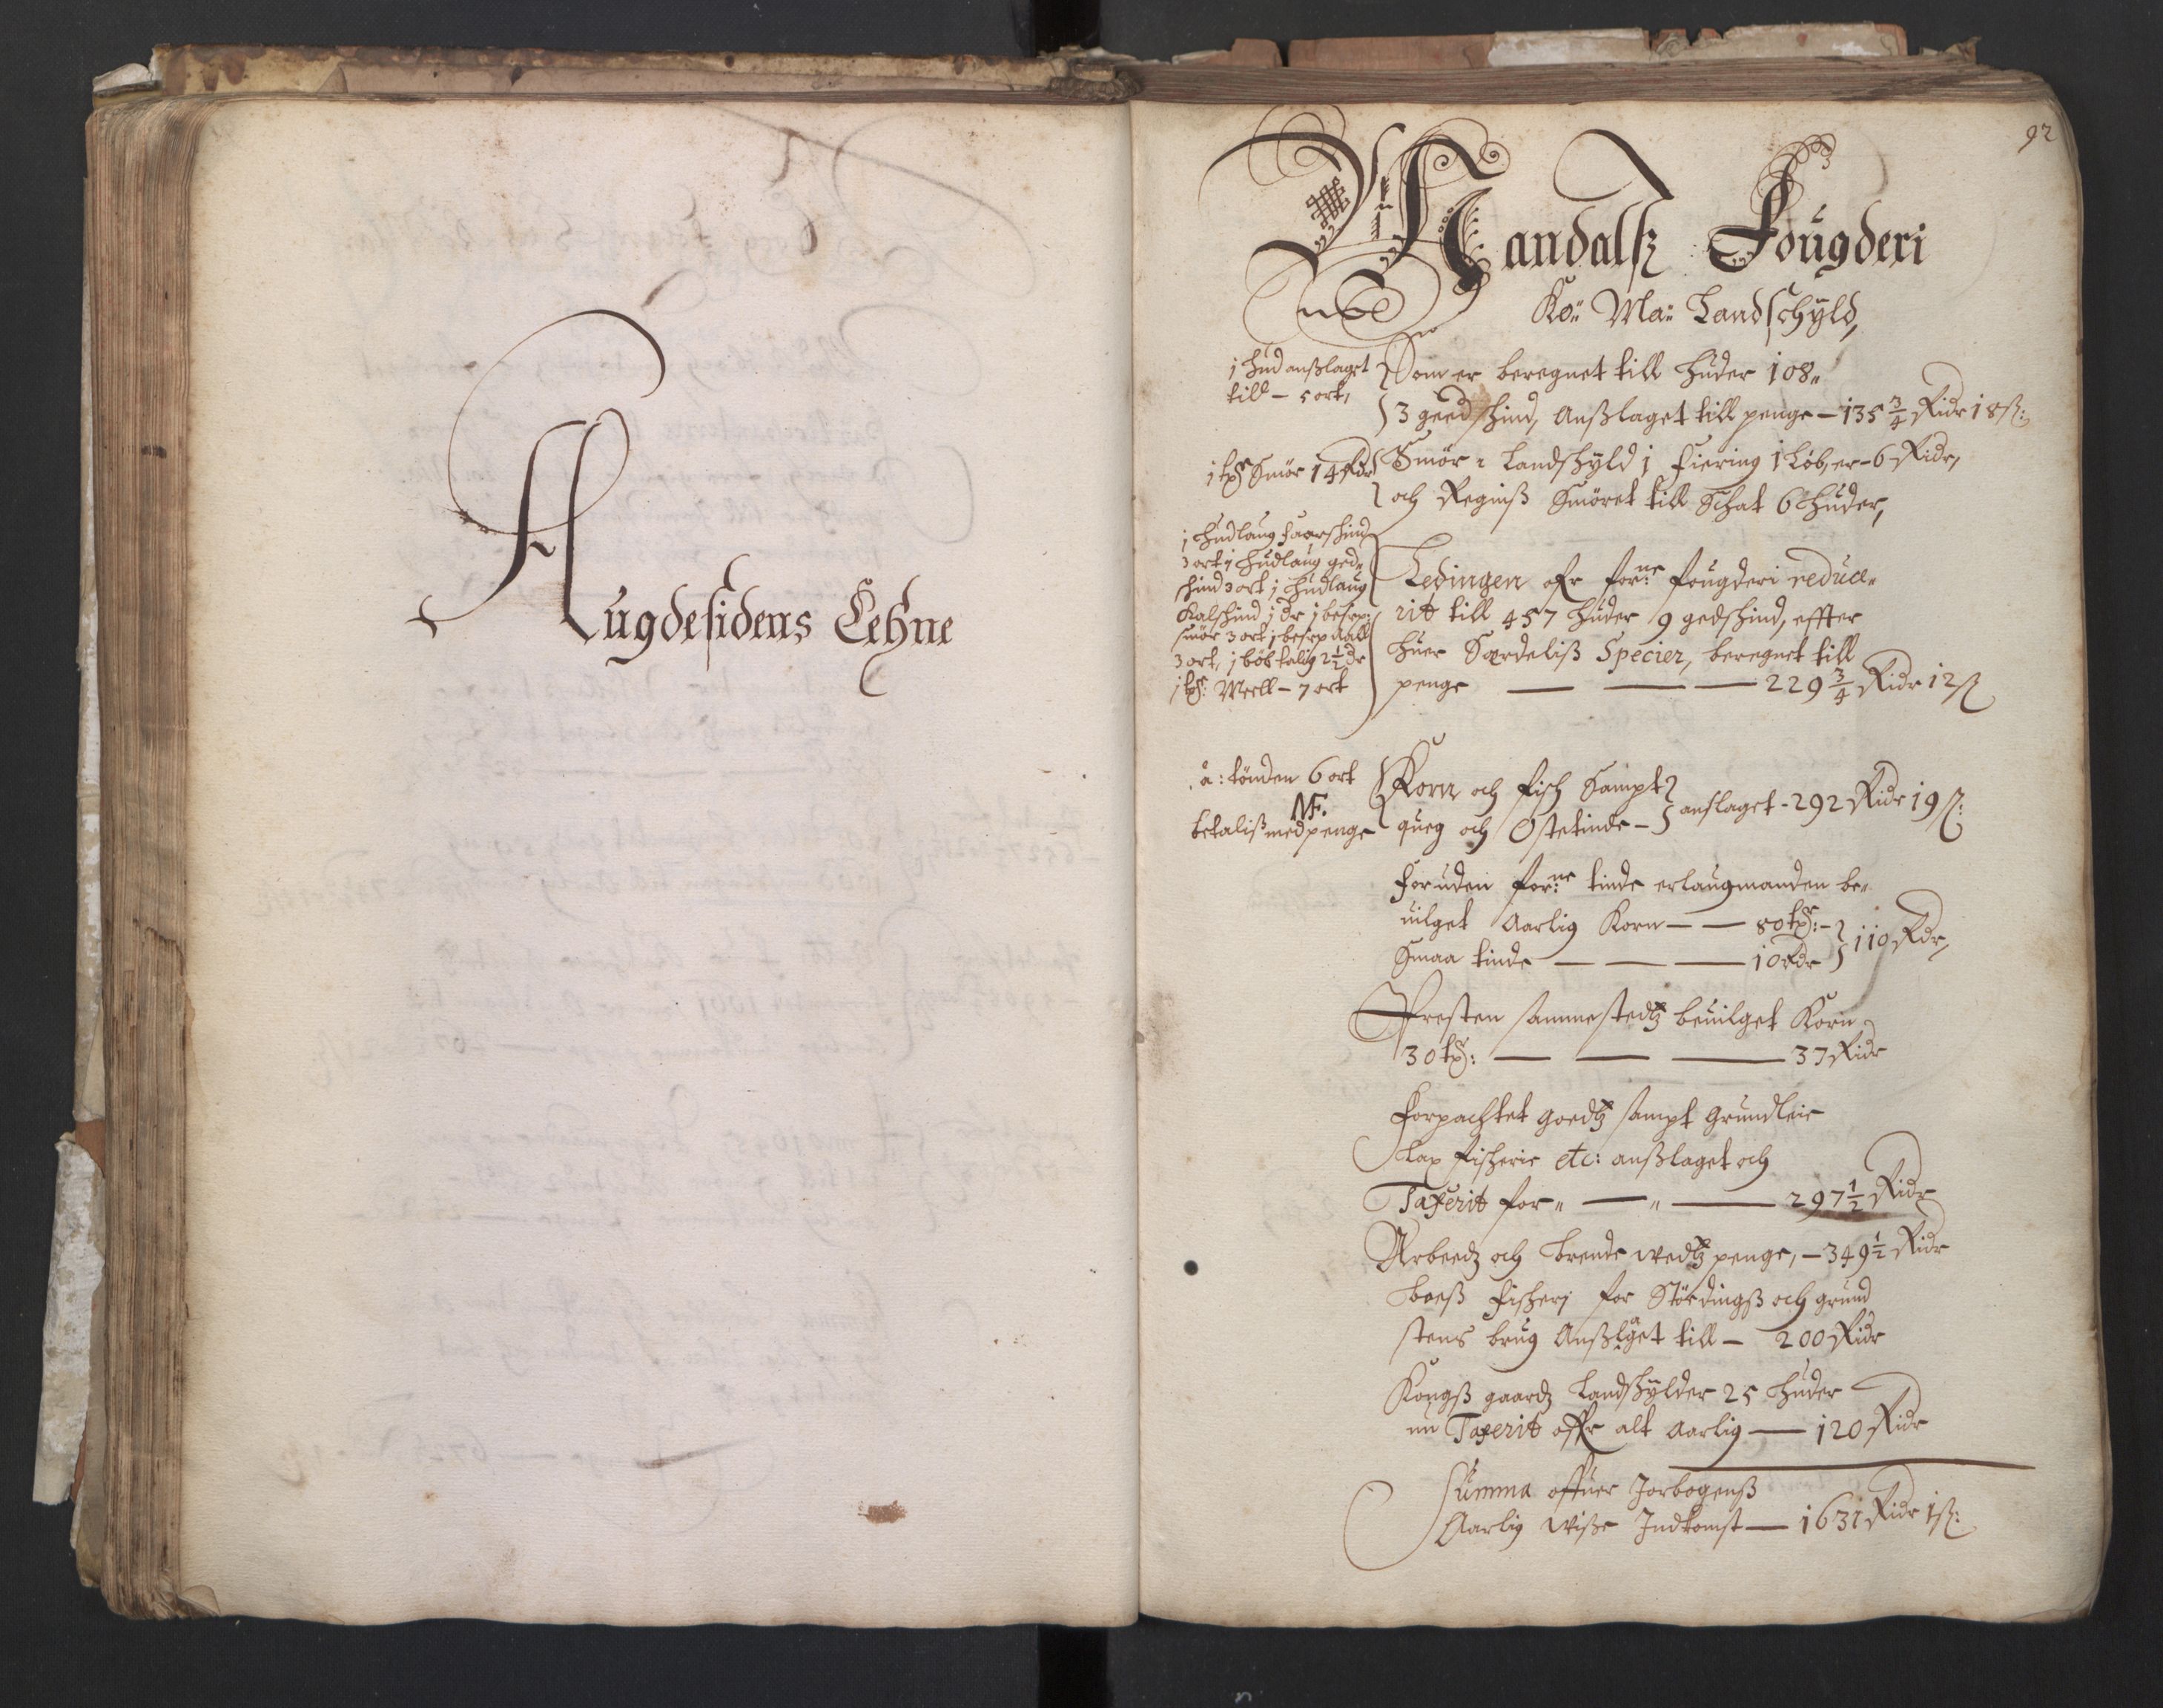 Augdesidens Lehne
92
Mandalß Fougderi
Ko: Ma: Landschyld,
1 hud anßlaget
till – 5 ort,
Som er beregnet till huder 108
3 geedschind, Anßlaget till penge – 135 3/4 Ridr 18 ß:
1 tp: Smör 14 Rdr
Smör Landschyld 1 fiering 1 Löb, er – 6 Ridr,
och Regniß Smöret till Schat 6 huder,
1 hudlaug faarschind
3 ort 1 hudlaug ged-
schind 3 ort 1 hudlaug
Kalschind 1 dr 1 besrp:
smör 3 ort 1 besrp aall
3 ort, 1 böb talig 2 1/2 dr
1 tp: Meell – 7 ort
Ledingen afr forne fougderi reduce-
rit till 457 huder 9 gedschind, effter
huer Særdeliß Specier, beregnet till
penge — — — 229 3/4 Ridr 12 ß
â: tönden 6 ort
betaliß med penge
Korn och fisch Sampt
queg och Ostetinde –
anslaget - 292 Ridr 19 ß:
Foruden forne tinde er laugmanden be-
uilget Aarlig Korn — — 80 tp: –
Smaa tinde — — — 10 Rdr
110 Rdr,
Presten sammestedtz beuilget Korn
30 tp: — — — 37 Ridr
Forpachtet goedtz sampt Grundleie
Lax fischerie etc: anßlaget och
Taxerit for — — 297 1/2 Ridr
Arbeedtz och brende wedtz penge, – 349 1/2 Ridr
fischeri for Stördingß och grund
stens brug Anßlaget till – 200 Ridr
Kongß gaardtz Landschylder 25 huder
nu Taxerit offr alt Aarlig — 120 Ridr
Summa offuer Jorbogenß
Aarlig wiße Indkomst — 1631 Ridr 1 ß: